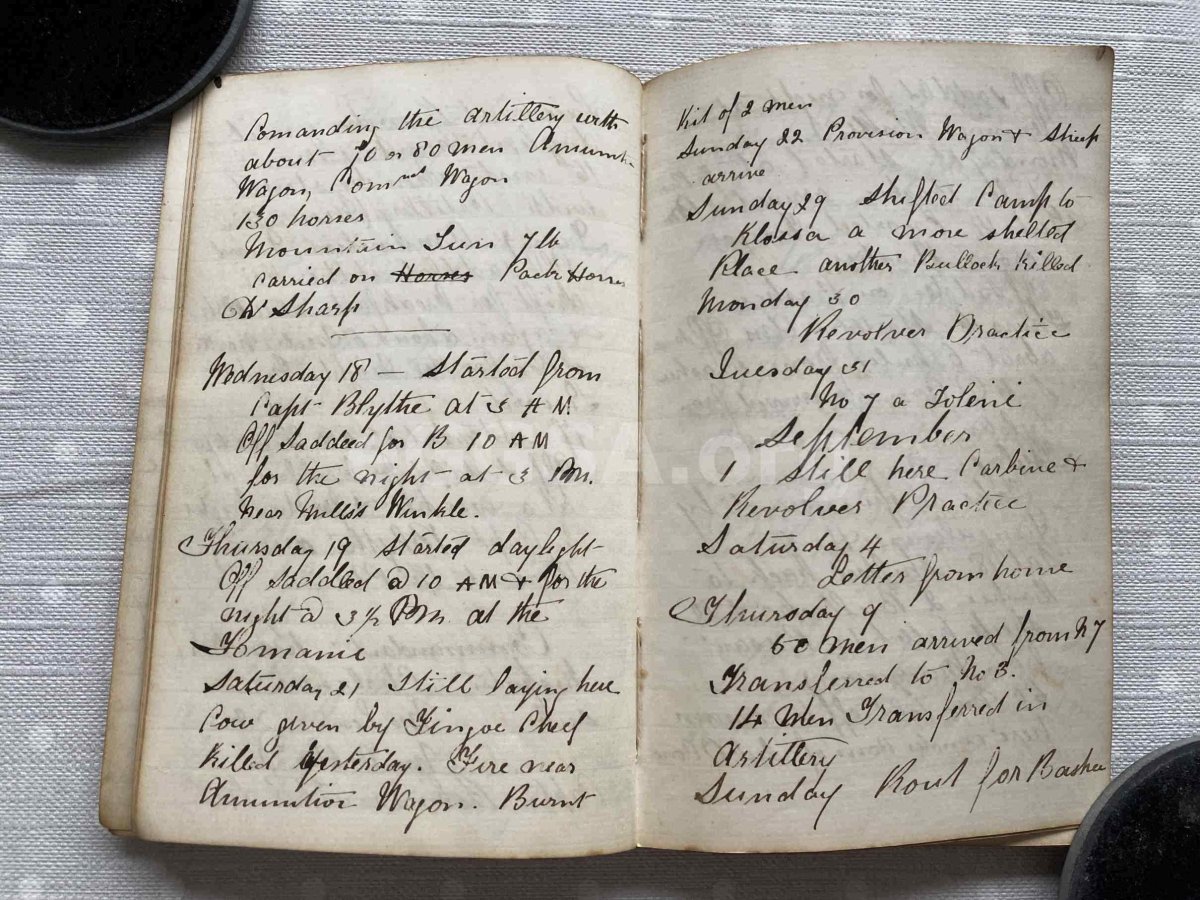 Comanding the Artillery with
about 70 or 80 men Amunti
Wagon, Com Wagon
130 horses
Mountain Gun 7 lb
carried on Horses Pack Horses
Dr Sharp
Wednesday 18 — Started from
Capt Blythe at 3 AM
Off Saddeed for B 10 AM
for the night at 3 Pm.
near Mills's Winkle.
Thursday 19 started daylight
Off Saddeed @ 10 AM & for the
night @ 3½ Pm. at the
Tomanie
Saturday 21 Still laying here
Cow given by Fingoe Cheef
Killed Yesterday. Fire near
Amunution Wagon. Burnt
Kit of 2 men
Sunday 22 Provision Wagon & Sheep
arrive
Sunday 29 Shifted Camp to
a more shelted
Place another Bullock Killed
Monday 30
Revolver Practice
Tuesday 31
No 7 a
September
1 Still here Carbine &
Revolver Practice
Saturday 4
Letter from home
Thursday 9
60 men arrived from N 7
Transferred to No 3.
14 Men Transferred in
Artillery
Sunday Rout for Bashee